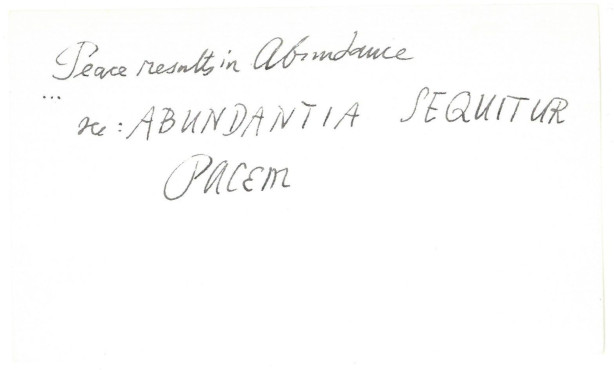 Peace results in Abundance
...
re: ABUNDANTIA SEQUITUR
PACEM